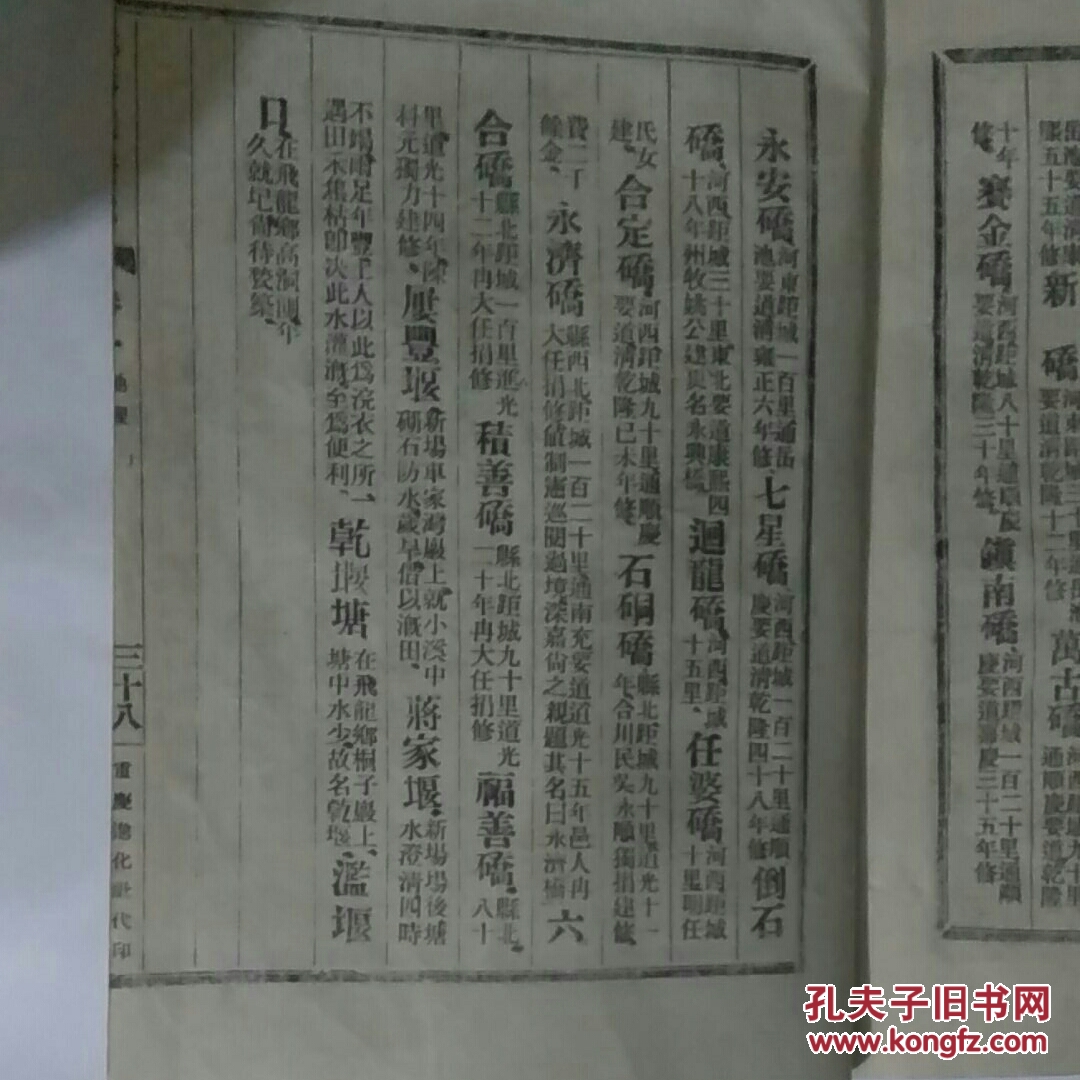 永安礄河東距城一百里通岳池要道清雍正六年修七星礄河西距城一百二十里通順慶要道清乾隆四十八年修倒石
礄河西距城三十里東北要道康熙四十八年州牧姚公建與名永興橋迴龍礄河西距城十五里任婆礄河西距城十里明任
氏女建合定礄河西距城九十里通順慶要道清乾隆已未年修石硐礄縣北距城九十里道光十一年合川民吳永順獨捐建修
費二千餘金永濟礄縣西北距城一百二十里通南充要道道光十五年邑人冉大任捐修值制憲巡閱過境深嘉尚之親題其名曰永濟橋六
合礄縣北距城一百里道光十二年冉大任捐修積善礄縣北距城九十里道光二十年冉大任捐修福善礄縣北八十
里道光十四年陳科元獨力建修屢豐堰新場車家灣巖上就小溪中砌石防水歲旱借以漑田蔣家堰新場場後塘水澄清四時
不塌雨足年豐土人以此爲浣衣之所一遇田禾焦枯卽決此水灌漑至爲便利乾堰塘在飛龍鄉桐子巖上塘中水少故名乾堰濫堰
口在飛龍鄉高洞年久就圮尚待整築
三十八
重慶進化社代印
修賽金礄河西距城八十里通順慶要道清乾隆三十年修鎮南礄河西距城一百二十里通順慶要道嘉慶二十五年修
五十五年修新礄河東距城三十里通長要道清乾隆十二年修萬古礄河西距城九十里通順慶要道乾隆
孔夫子旧书网
www.kongfz.com